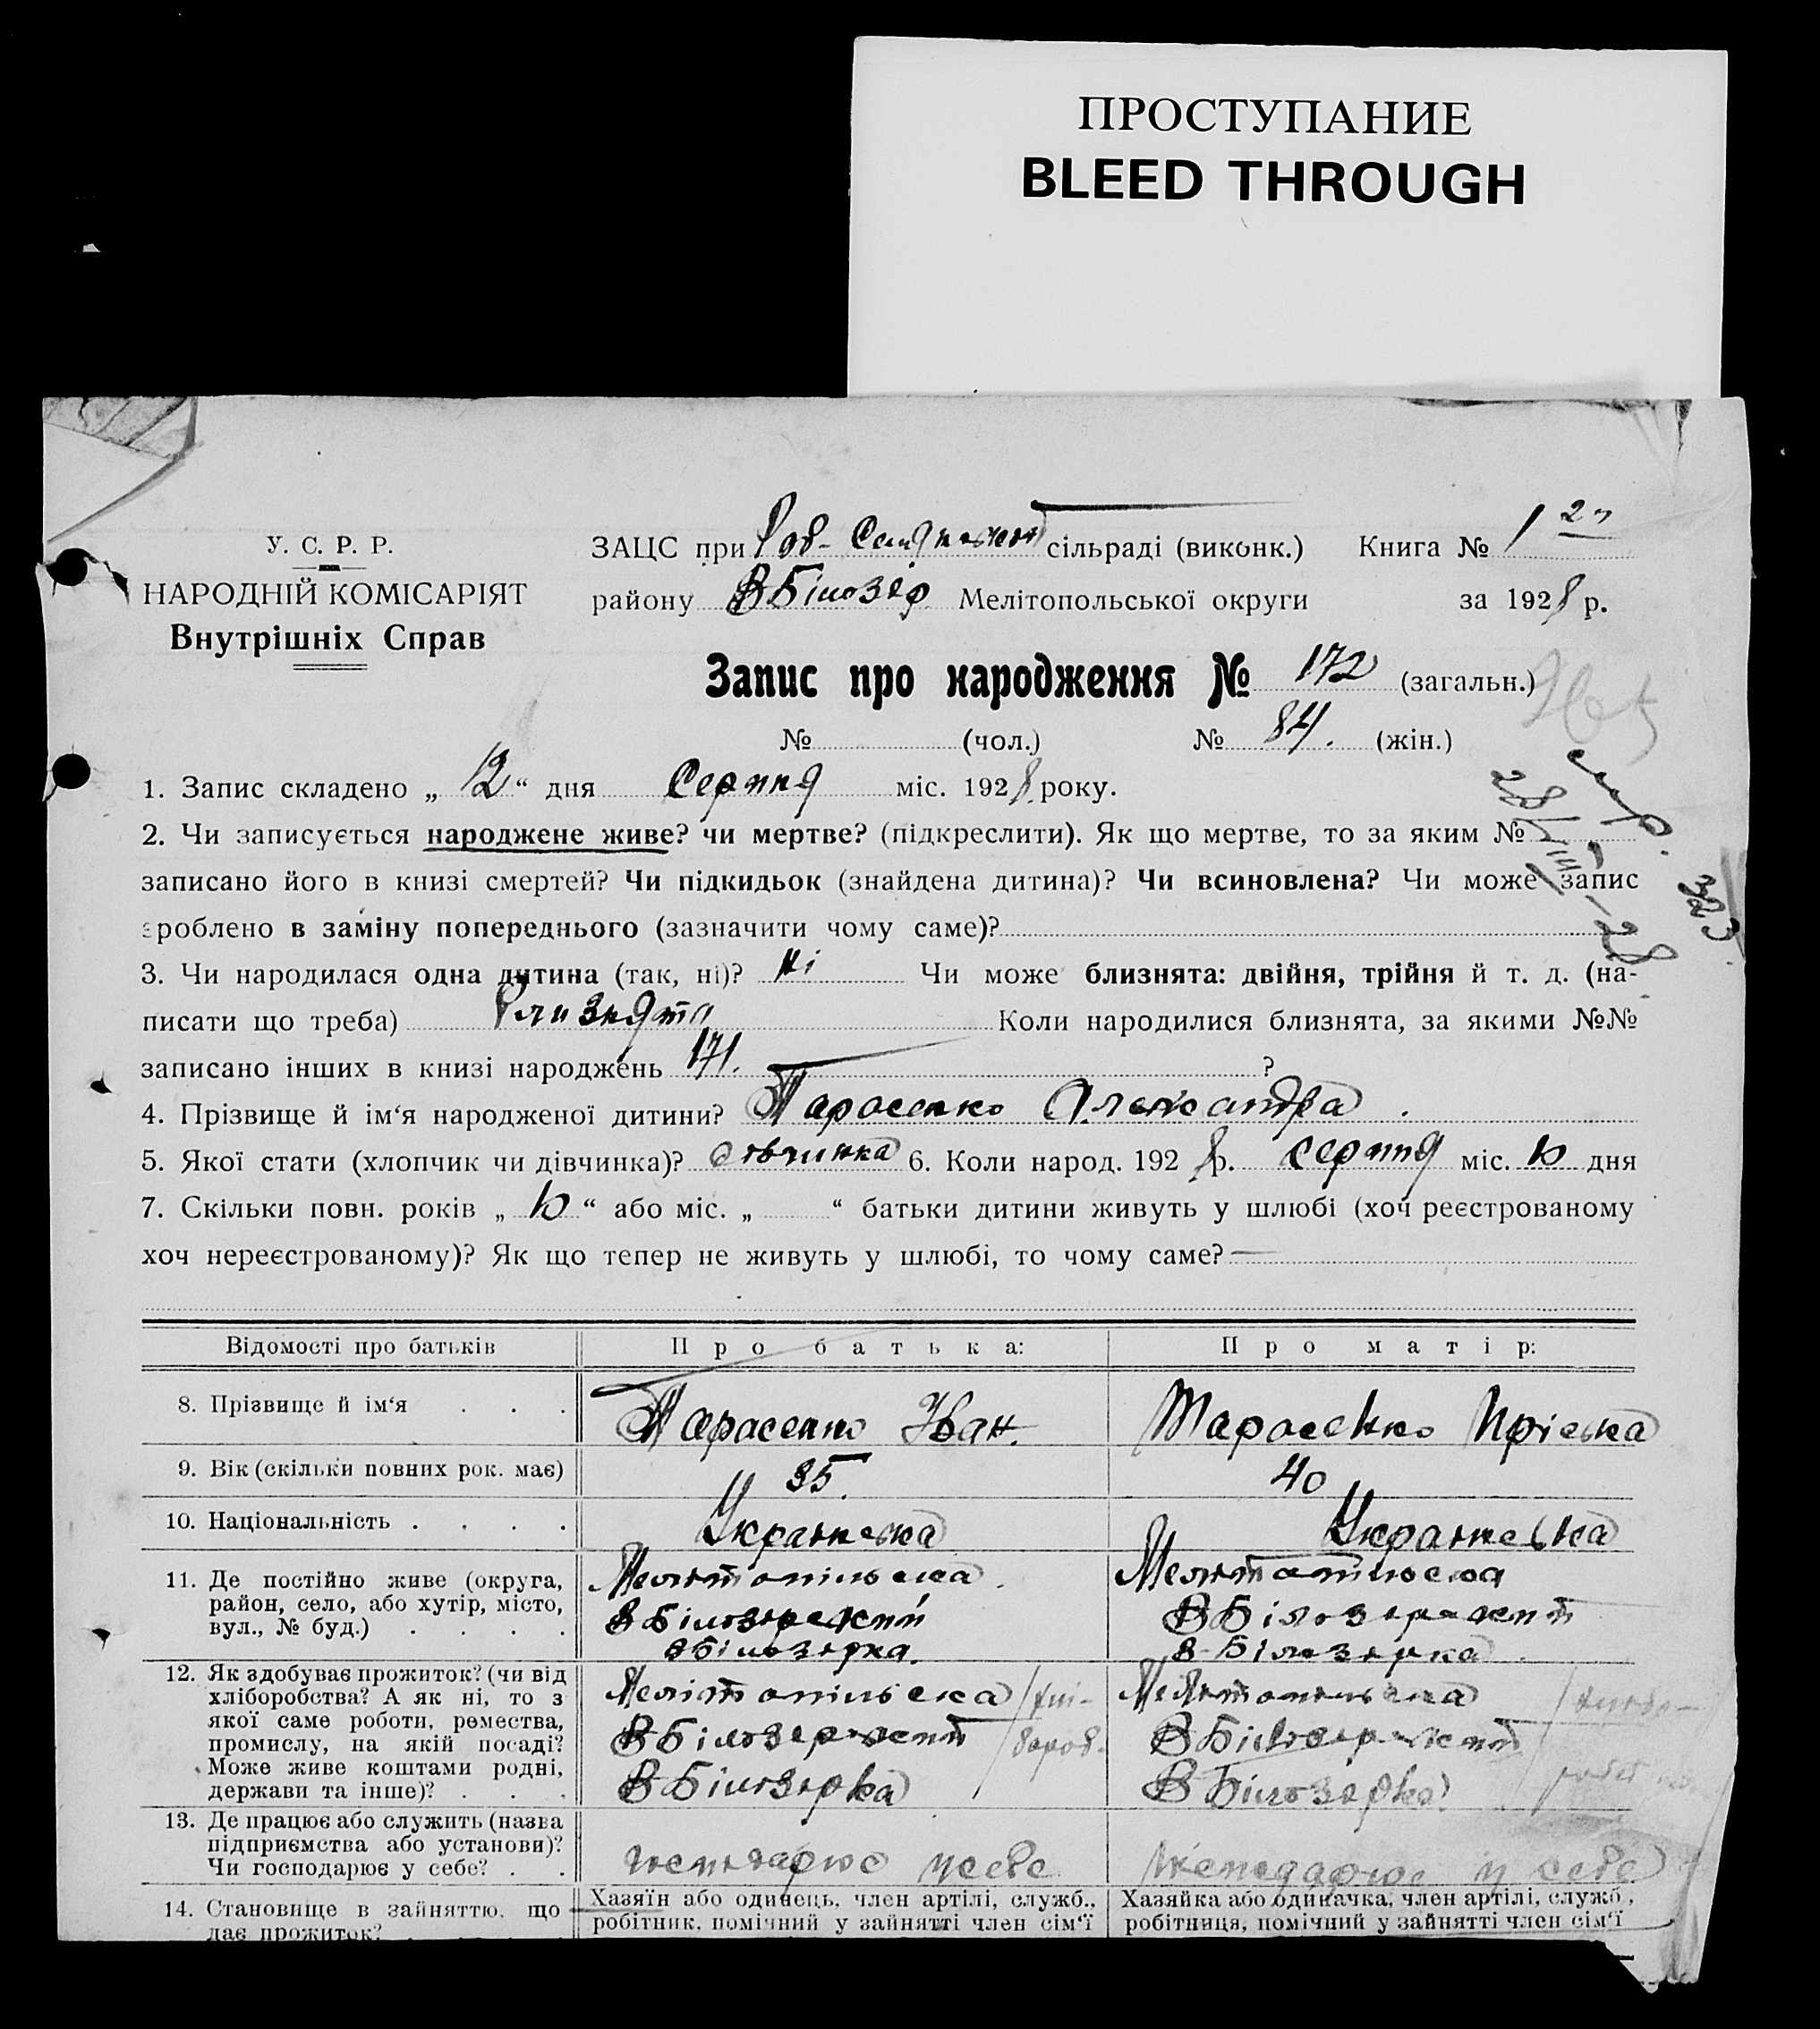 ПРОСТУПАНИЕ
BLEED THROUGH
У. С. Р. Р.
НАРОДНІЙ КОМІСАРІЯТ
Внутрішніх Справ
ЗАЦС при сільраді (виконк.) Книга № 1
району ВБілозер Мелітопольської округи за 1928 р.
Запис про народження № 172 (загальн.)
№ (чол.) № 84. (жін.)
1. Запис складено „ 12 “ дня Серпня міс. 1928 року.
2. Чи записується народжене живе? чи мертве? (підкреслити). Як що мертве, то за яким №
записано його в книзі смертей? Чи підкидьок (знайдена дитина)? Чи всиновлена? Чи може запис
зроблено в заміну попереднього (зазначити чому саме)?
323
3. Чи народилася одна дитина (так, ні)? Ні Чи може близнята: двійня, трійня й т. д. (на-
писати що треба) Близнята Коли народилися близнята, за якими №№
записано інших в книзі народжень 171. ?
4. Прізвище й ім‘я народженої дитини? Тарасенко Александра.
5. Якої стати (хлопчик чи дівчинка)? дівчинка 6. Коли народ. 1928 р. Серпня міс. 10 дня
7. Скільки повн. років „ 10 “ або міс. „ “ батьки дитини живуть у шлюбі (хоч реєстрованому
хоч нереєстрованому)? Як що тепер не живуть у шлюбі, то чому саме?
Відомості про батьків Про батька: Про матір:
8. Прізвище й ім‘я . . . Тарасенко Іван. Тарасенко Пріська
9. Вік (скільки повних рок. має) 35. 40
10. Національність . . . . Українська Українська
11. Де постійно живе (округа, Мелітопільська. Мелітопільська
район, село, або хутір, місто, ВБілозерський ВБілозерський
вул., № буд.) . . . . ВБілозерка. В-Білозерка.
12. Як здобуває прожиток? (чи від Мелітопільська / хлі- Мелітопільська
хліборобства? А як ні, то з
якої саме роботи, ремества, ВБілозерський / бороб. ВБілозерський
промислу, на якій посаді?
Може живе коштами родні, ВБілозерка ВБілозерка
держави та інше)? . . .
13. Де працює або служить (назва
підприємства або установи)? господарює у себе господарює у себе
Чи господарює у себе? . .
14. Становище в зайняттю, що Хазяїн або одинець, член артілі, служб., Хазяйка або одиначка, член артілі, служб.,
дає прожиток? . . . . робітник, помічний у зайнятті член сім‘ї робітниця, помічний у зайнятті член сім‘ї